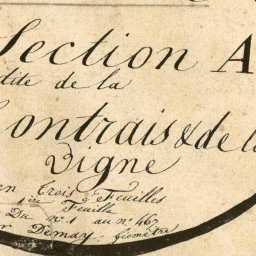 Section A
dite de la
Contrais & de la
Digne
en trois Feuilles
1ère Feuille
Du n° 1 au n° 467
Par Demay, Géomètre